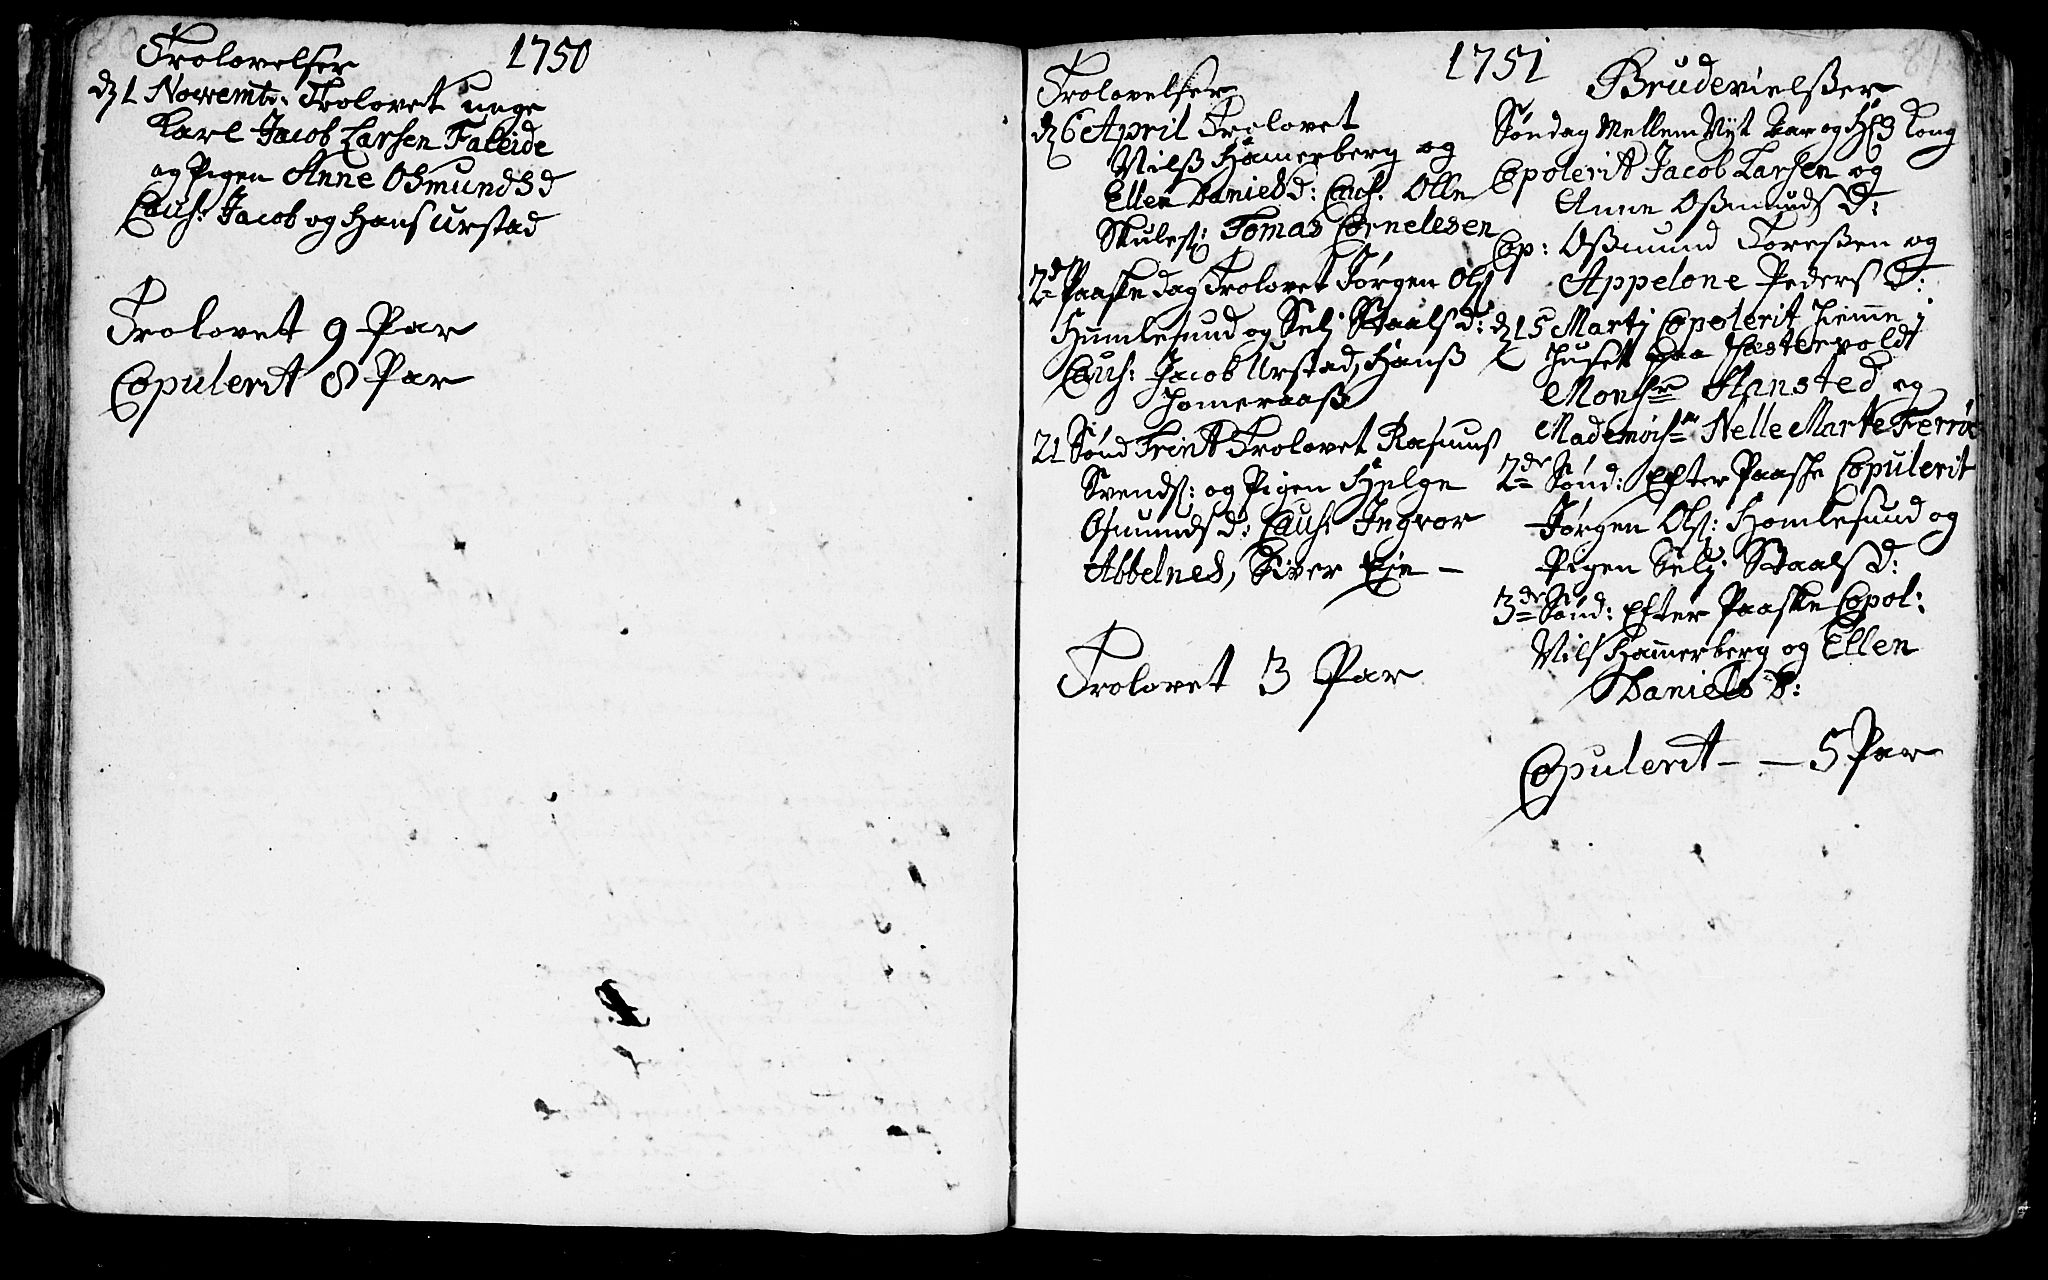 80
Trolovelser 1750
dȝ 1 Novemb: Trolovet unge
Karl Jacob Larsen Faleide
og Pigen Anne Osmundsd
Caus: Jacob og Hans Urstad
Trolovet 9 Par
Copulerit 8 Par
1751
81
Trolovelser
dȝ 6 April Trolovet
Nilß Hamerberg og
Ellen Danielsd: Caus: Olle
Skules: Tomas Cornelesen
2d Paaske dag Trolovet Jørgen Ols:
Humlesund og Selj Staalsd:
Caus: Jacob Urstad, Hanß
Homeraaß
21 Sønd Trint Trolovet Rasmus
Svends: og Pigen Helge
Osmundsd: Caus: Ingvor
Abbelnes, Siver Eje
Trolovet 3 Par
Brudevielßer
Søndag Mellem Nyt Aar og H 3 Kong
Copolerit Jacob Larsen og
Anne Oßmundsd:
Cop: Oßmund Toreßen og
Appelone Pedersd:
dȝ 15 Martj Copolerit hiemme i
Huset paa
Monsr Hansted og
Mademoisle Nelle Marte Ferrøe
2de Sønd: Efter Paaske Copulerit
Jørgen Ols: Homlesund og
Pigen Selj Staalsd:
3de Sønd: Efter Paaske Copol:
Nils Hamerberg og Ellen
Danielsd:
Copulerit - - 5 Par